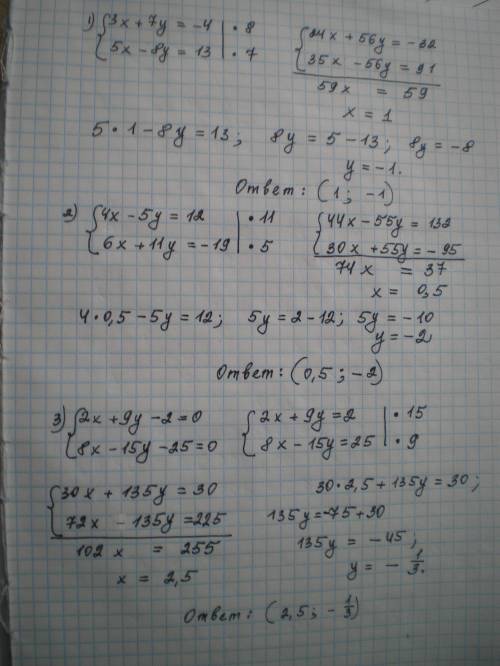 1) {3x + 7y = -4 | · 8
{5x - 8y = 13 | · 7
{24x + 56y = -32
{35x - 56y = 91
59x = 59
x = 1
5 · 1 - 8y = 13; 8y = 5 - 13; 8y = -8
y = -1.
Ответ: (1; -1)
2) {4x - 5y = 12 | · 11
{6x + 11y = -19 | · 5
{44x - 55y = 132
{30x + 55y = -95
74x = 37
x = 0,5
4 · 0,5 - 5y = 12; 5y = 2 - 12; 5y = -10
y = -2
Ответ: (0,5; -2)
3) {2x + 9y - 2 = 0
{8x - 15y - 25 = 0
{2x + 9y = 2 | · 15
{8x - 15y = 25 | · 9
{30x + 135y = 30
{72x - 135y = 225
102x = 255
x = 2,5
30 · 2,5 + 135y = 30;
135y = -75 + 30
135y = -45;
y = - 1/3.
Ответ: (2,5; - 1/3)